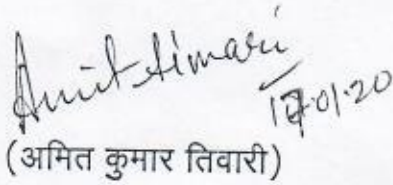 Amit Tiwari
17.01.20
(अमित कुमार तिवारी)